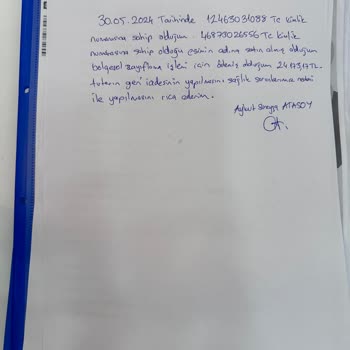 30.05.2024 Tarihinde 12463031088 Tc Kimlik
numarasına sahip olduğum 46879026596 Tc Kimlik
numarasına sahip olduğu eşimin adına satın almış olduğum
bölgesel zayıflama işlemi için ödemiş olduğum 24.173,17 TL.
tutarın geri iadesinin yapılmasını sağlık sorunlarımız nedeni
ile yapılmasını rica ederim.
Aykut ATASOY